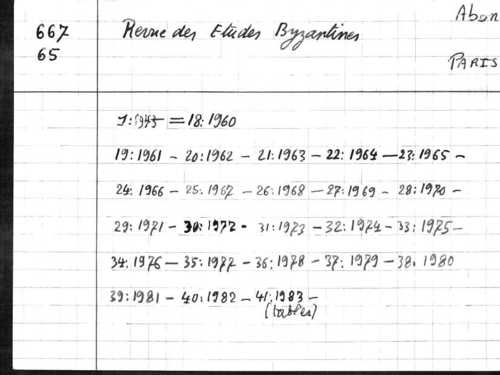 Abon
667 Revue des Etudes Byzantines
65
PARIS
1:1943 = 18:1960
19:1961 - 20:1962 - 21:1963 - 22:1964 - 23:1965 -
24:1966 - 25:1967 - 26:1968 - 27:1969 - 28:1970 -
29:1971 - 30:1972 - 31:1973 - 32:1974 - 33:1975 -
34:1976 - 35:1977 - 36:1978 - 37:1979 - 38:1980
39:1981 - 40:1982 - 41:1983 -
(tables)